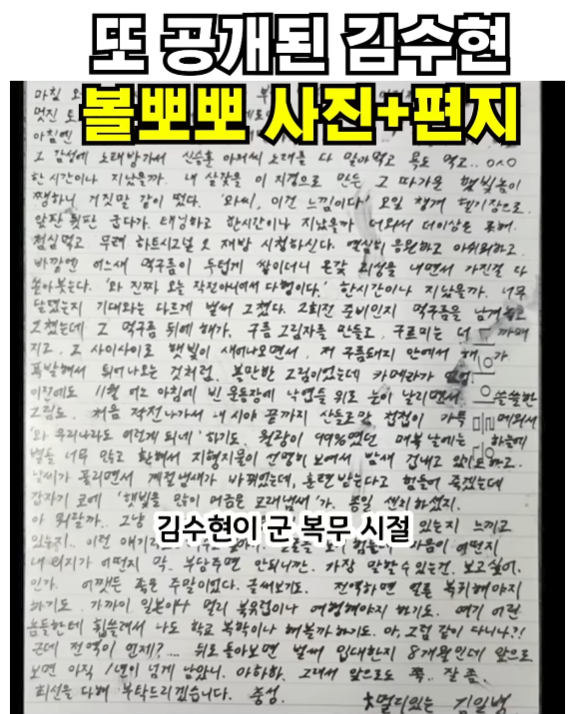 또 공개된 김수현
볼뽀뽀 사진+편지
마침
멋진
아침엔
그 감성에 노래방가서 신승훈 아저씨 노래를 다 말아먹고 욕도 먹고..
한시간이나 지났을까. 내 살갗을 이 지경으로 만든 그 따가운 햇빛놈이
쨍하니 거짓말 같이 떴다. '와씨, 이건 느낌이다!' 요일 챙겨 헬기장으로.
앞판 뒷판 굽다가. 태닝하고 한시간이나 지났을까 더워서 더이상은 못해.
점심먹고 무려 하트시그널 2 재방 시청하신다. 열심히 응원하고 아쉬워하고.
바깥엔 어느새 먹구름이 두텁게 쌓이더니 온갖 리실을 내면서 가진걸 다
쏟아붓는다. '와 진짜 오늘 작전아니여서 다행이다.' 한시간이나 지났을까. 너무
달렸는지 기대와는 다르게 벌써 그쳤다. 2회전 준비인지 먹구름을 남겨놓고
그쳤는데 그 먹구름 뒤에 해가, 구름 그림자를 만들고, 구르미는 더 까매
지고, 그 사이사이로 햇빛이 새어나오면서, 저 구름돼지 안에서 해가
폭발해서 튀어나오는 것처럼. 볼만한 그림이었는데 카메라가 없었
이전에도 11월 어느 아침에 빈 운동장에 낙엽들 위로 눈이 날리면서 쓸쓸한
그림도. 처음 작전나가서 내 시야 끝까지 산들로만 첩첩이 가득 메워서
'와 우리나라도 이런게 되네' 하기도. 월광이 99%였던 매복 날에는 하늘에
별들 너무 많고 환해서 지형지물이 선명히 보여서 밤새 겁내고 있기도 하고.
날씨가 풀리면서 계절냄새가 바뀌었는데, 훈련받는다고 힘들어 죽겠는데
갑자기 코에 '햇빛을 많이 머금은 모래냄새'가. 종일 생각하셨지.
아 뭐랄까.. 그냥 있는지 느끼고
김수현이 군 복무 시절
있는지.. 이런 얘기 마음이 어떤지
내 위치가 어떤지 막. 부담주면 안되니깐. 가장 말할 수 있는건. 보고싶어.
인가. 어쨌든 좋은 주말이었다. 글써보기도. 전역하면 얼른 복귀해야지
하기도. 가까이 일본이나 멀리 북유럽이나 여행해야지 하기도. 여기 어린
놈들한테 휩쓸려서 나도 학교 복학이나 해볼까 하기도. 아, 그럼 같이 다니나?!
근데 전역이 언제?.... 뒤로 돌아보면 벌써 입대한지 8개월인데 앞으로
보면 아직 1년이 넘게 남았니. 아하하. 그래서 앞으로도 쭉.. 잘 좀.
최선을 다해 부탁드리겠습니다. 충성.
멀리있는 김일병